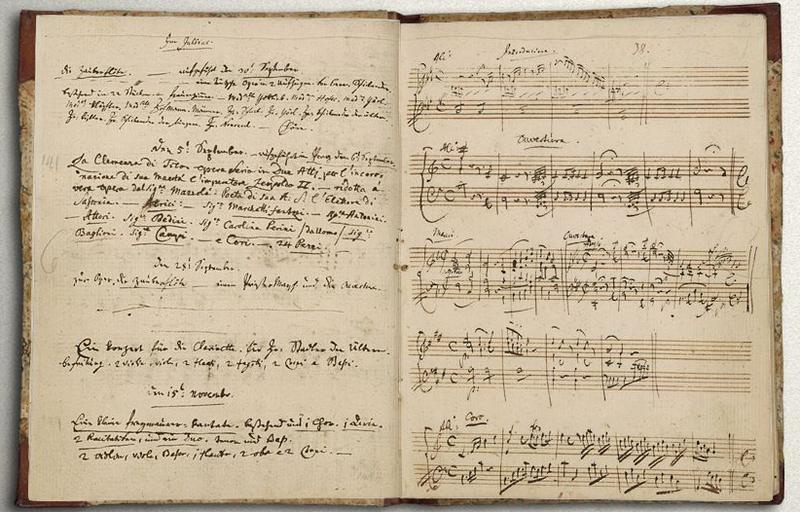 Im Jullius.
die Zauberflöte. — aufgeführt den 30t September.
eine teutsche Oper in 2 Aufzügen. von Eman. Schikaneder.
bestehend in 22 Stücken. — Frauenzimmer. — Mad:selle Gottlieb. Mad:me Hofer. Mad:me Görl.
Mad:me Klöpfler. Mad:selle Hofmann. Männer. Hr: Schack. Hr: Görl. Hr: Schikaneder der ältere.
Hr: Kistler. Hr: Schikaneder der jüngere. Hr: Nouseul. — Chöre.
den 5t September. — aufgeführt in Prag den 6t September.
La Clemenza di Tito. opera Seria in Due Atti. per l'incoro-
nazione di sua maestà l'imperatore Leopoldo II. — ridotta à
vera opera dal Sigre Mazzolà. Poeta di sua A: S: l'Elettore di
Saßonia. — Attrici: — Sigra Marchetti fantozi. — Sigra Antonini.
— Attori. Sigre Bedini. Sigra Carolina Perini / da Uomo / Sigre
Baglioni. Sigre Campi — e Cori. — 24 Pezzi.
den 28t September.
zur Oper. die Zauberflöte — einen Priestermarsch und die Ouverture.
Ein Konzert für die Clarinette. für Hr: Stadler den ältern.
begleitung. 2 violini, viola, 2 flauti, 2 fagotti, 2 Corni e Baßi.
den 15t Novembr.
Eine kleine freymaurer-kantate. bestehend aus 1 Chor. 1 Aria.
2 Recitativen, und ein Duo. tenor und Bass.
2 violini, viola, Basso, 1 flauto, 2 oboe e 2 Corni. —
38.
Ouverture.
Marcia
Ouverture
Coro.